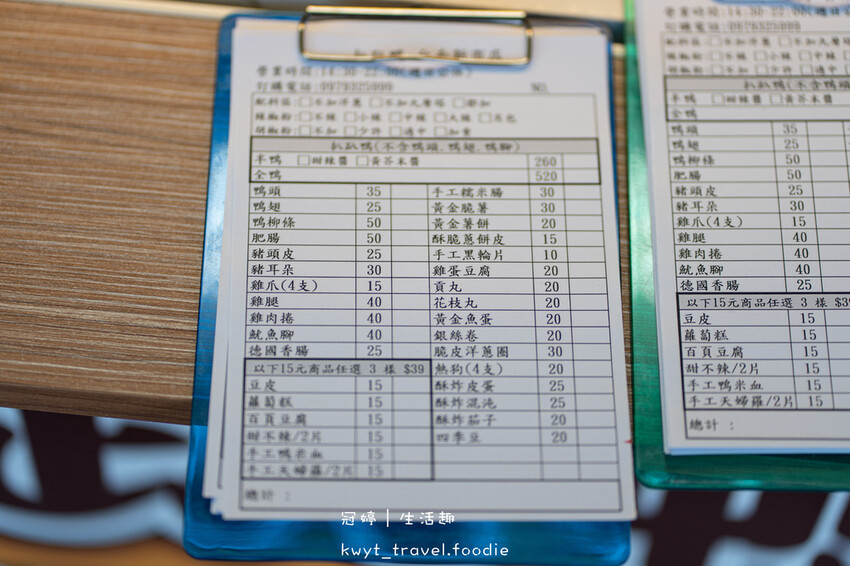 營業時間:14:30-22:00(週日公休)
訂購電話:0979325099 NO.
配料區:□不加洋蔥 □不加九層塔 □都加
辣椒粉:□不辣 □小辣 □中辣 □大辣
胡椒粉:□不加 □少許 □適中 □加重
趴趴鴨(不含鴨頭.鴨翅.鴨腳)
半鴨 □甜辣醬 □黃芥末醬 260
全鴨 520
鴨頭 35 手工糯米腸 30
鴨翅 25 黃金脆薯 30
鴨柳條 50 黃金薯餅 20
肥腸 50 酥脆蔥餅皮 15
豬頭皮 25 手工黑輪片 10
豬耳朵 30 雞蛋豆腐 20
雞爪(4支) 15 貢丸 20
雞腿 40 花枝丸 20
雞肉捲 40 黃金魚蛋 20
魷魚腳 40 銀絲卷 20
德國香腸 25 脆皮洋蔥圈 30
以下15元商品任選 3 樣 $39 熱狗(4支) 20
豆皮 15 酥炸皮蛋 25
蘿蔔糕 15 酥炸混沌 25
百頁豆腐 15 酥炸茄子 20
甜不辣/2片 15 四季豆 20
手工鴨米血 15
手工天婦羅/2片 15
總計 :
營業時間:14:30-22:00(週日
訂購電話:0979325099
□不加洋蔥 □不加九層
□不辣 □小辣 □中辣
□不加 □少許 □適中
趴趴鴨(不含鴨頭
半鴨 □甜辣醬 □黃芥末醬
全鴨
鴨頭 35
鴨翅 25
鴨柳條 50
肥腸 50
豬頭皮 25
豬耳朵 30
雞爪(4支) 15
雞腿 40
雞肉捲 40
魷魚腳 40
德國香腸 25
以下15元商品任選 3 樣 $39
豆皮 15
蘿蔔糕 15
百頁豆腐 15
甜不辣/2片 15
手工鴨米血 15
手工天婦羅/2片 15
總計 :
冠婷│生活趣
kwyt_travel.foodie